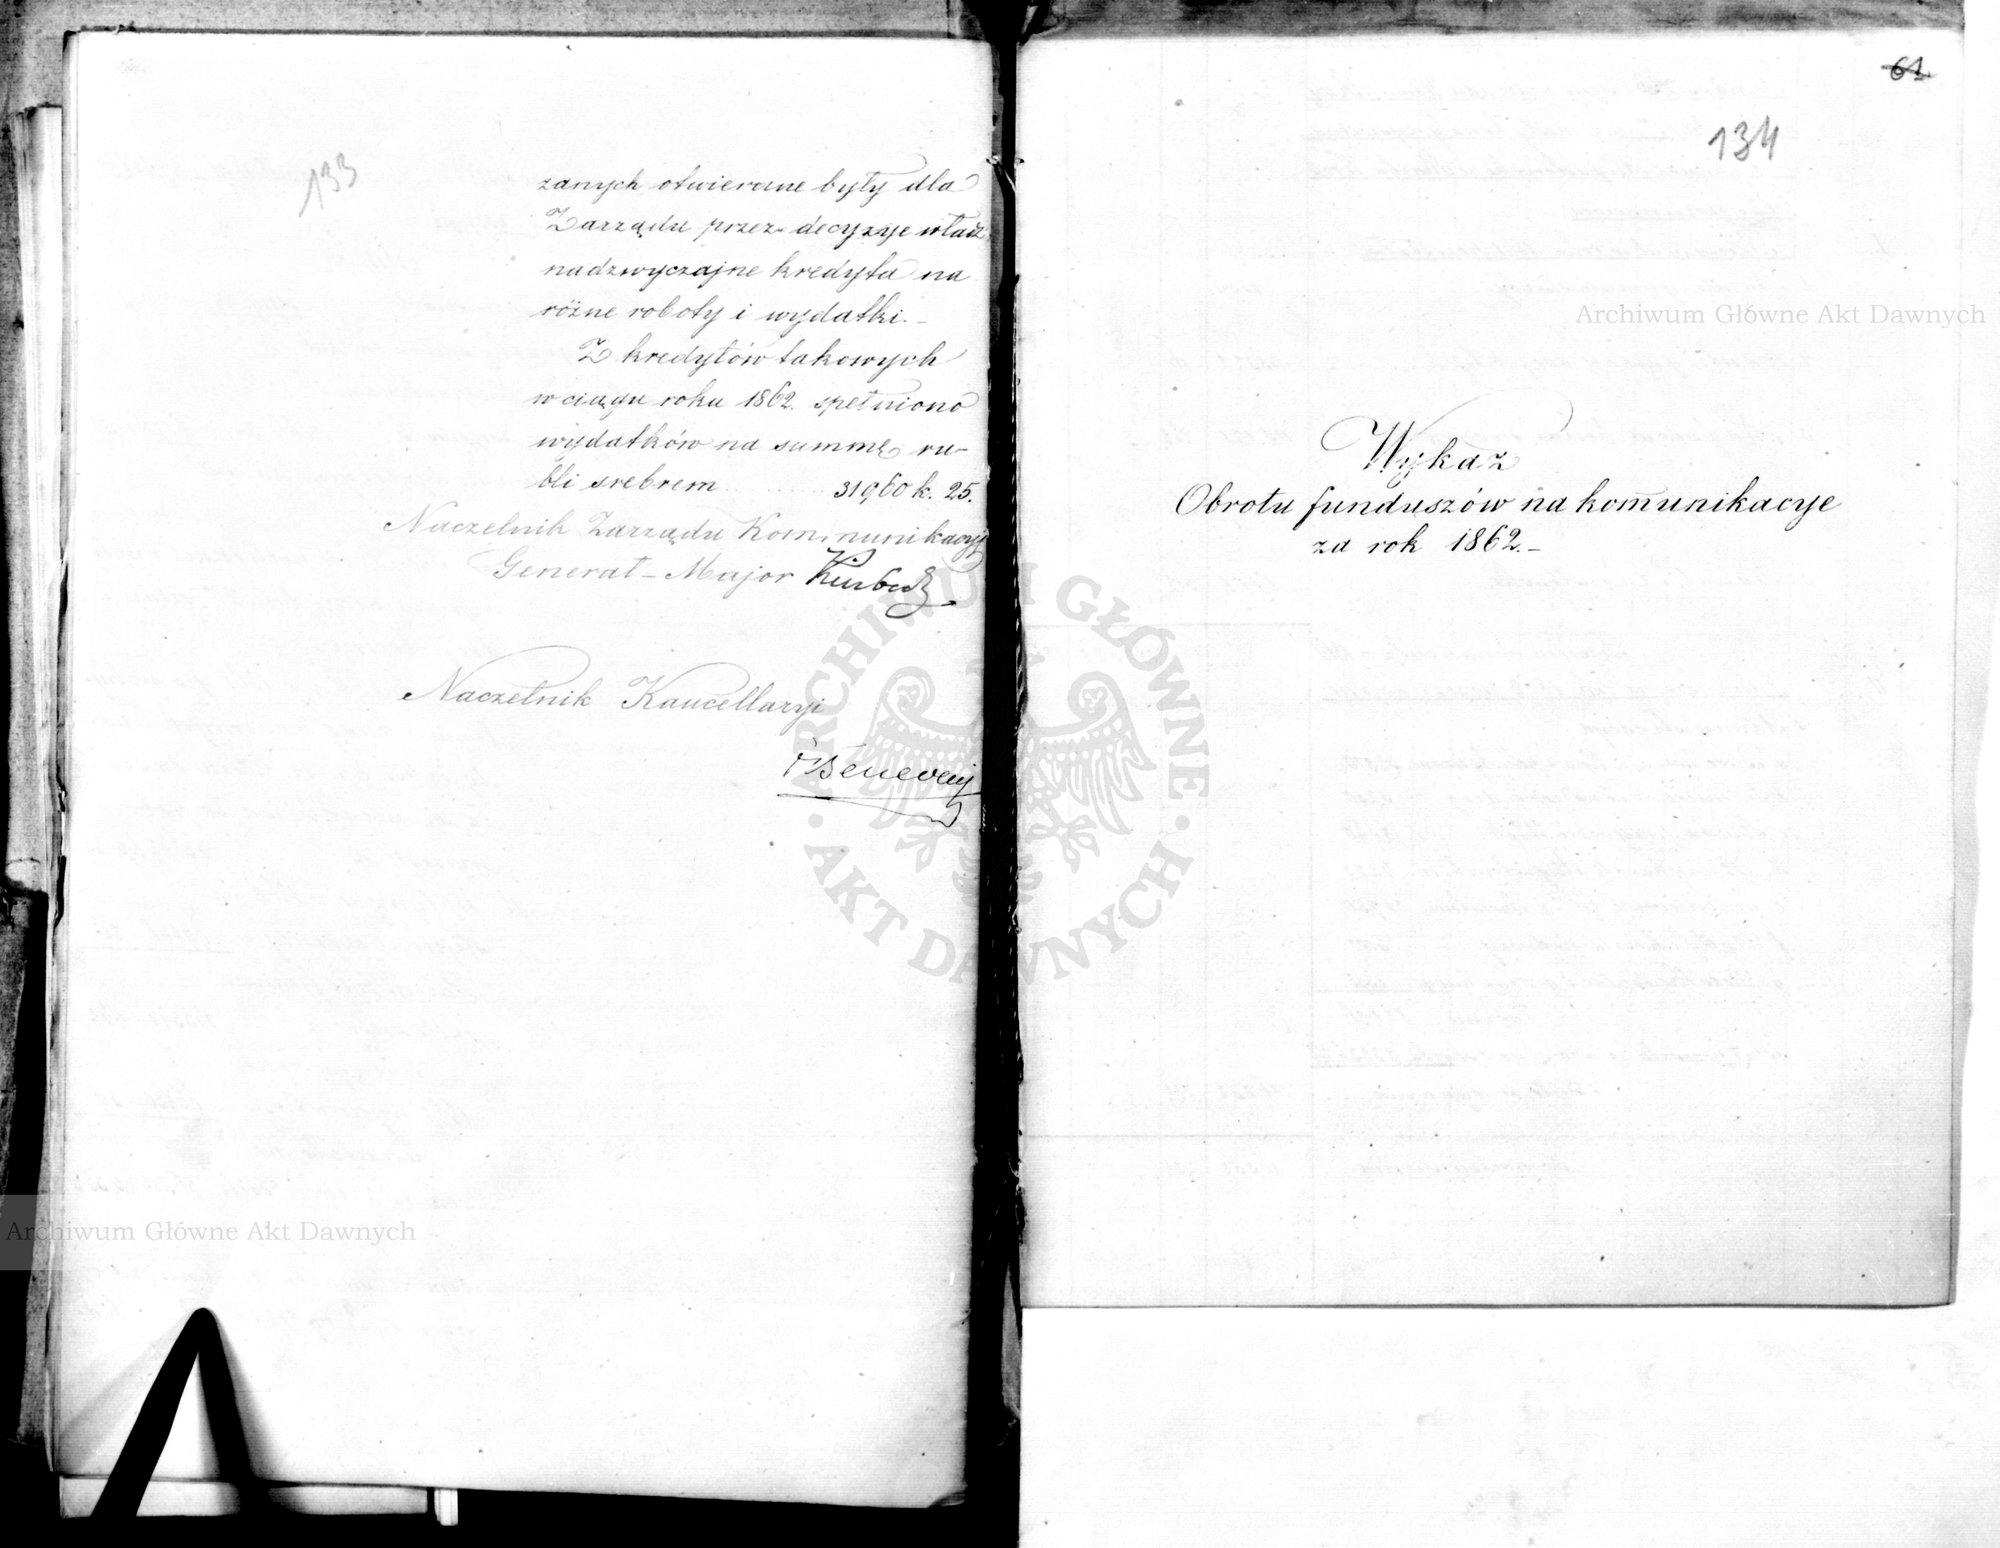 133
zanych otwierane były dla
Zarządu przez decyzye władz
nadzwyczajne kredyta na
różne roboty i wydatki. –
Z kredytów takowych
w ciągu roku 1862. spełniono
wydatków na summę ru-
bli srebrem ........ 31960 k. 25.
Naczelnik Zarządu Kommunikacyj
Generał – Major
Naczelnik Kancellaryi
61
134
Wykaz
Obrotu funduszów na komunikacye
za rok 1862. –
Archiwum Główne Akt Dawnych
Archiwum Główne Akt Dawnych
ARCHIWUM GŁÓWNE
· AKT DAWNYCH ·